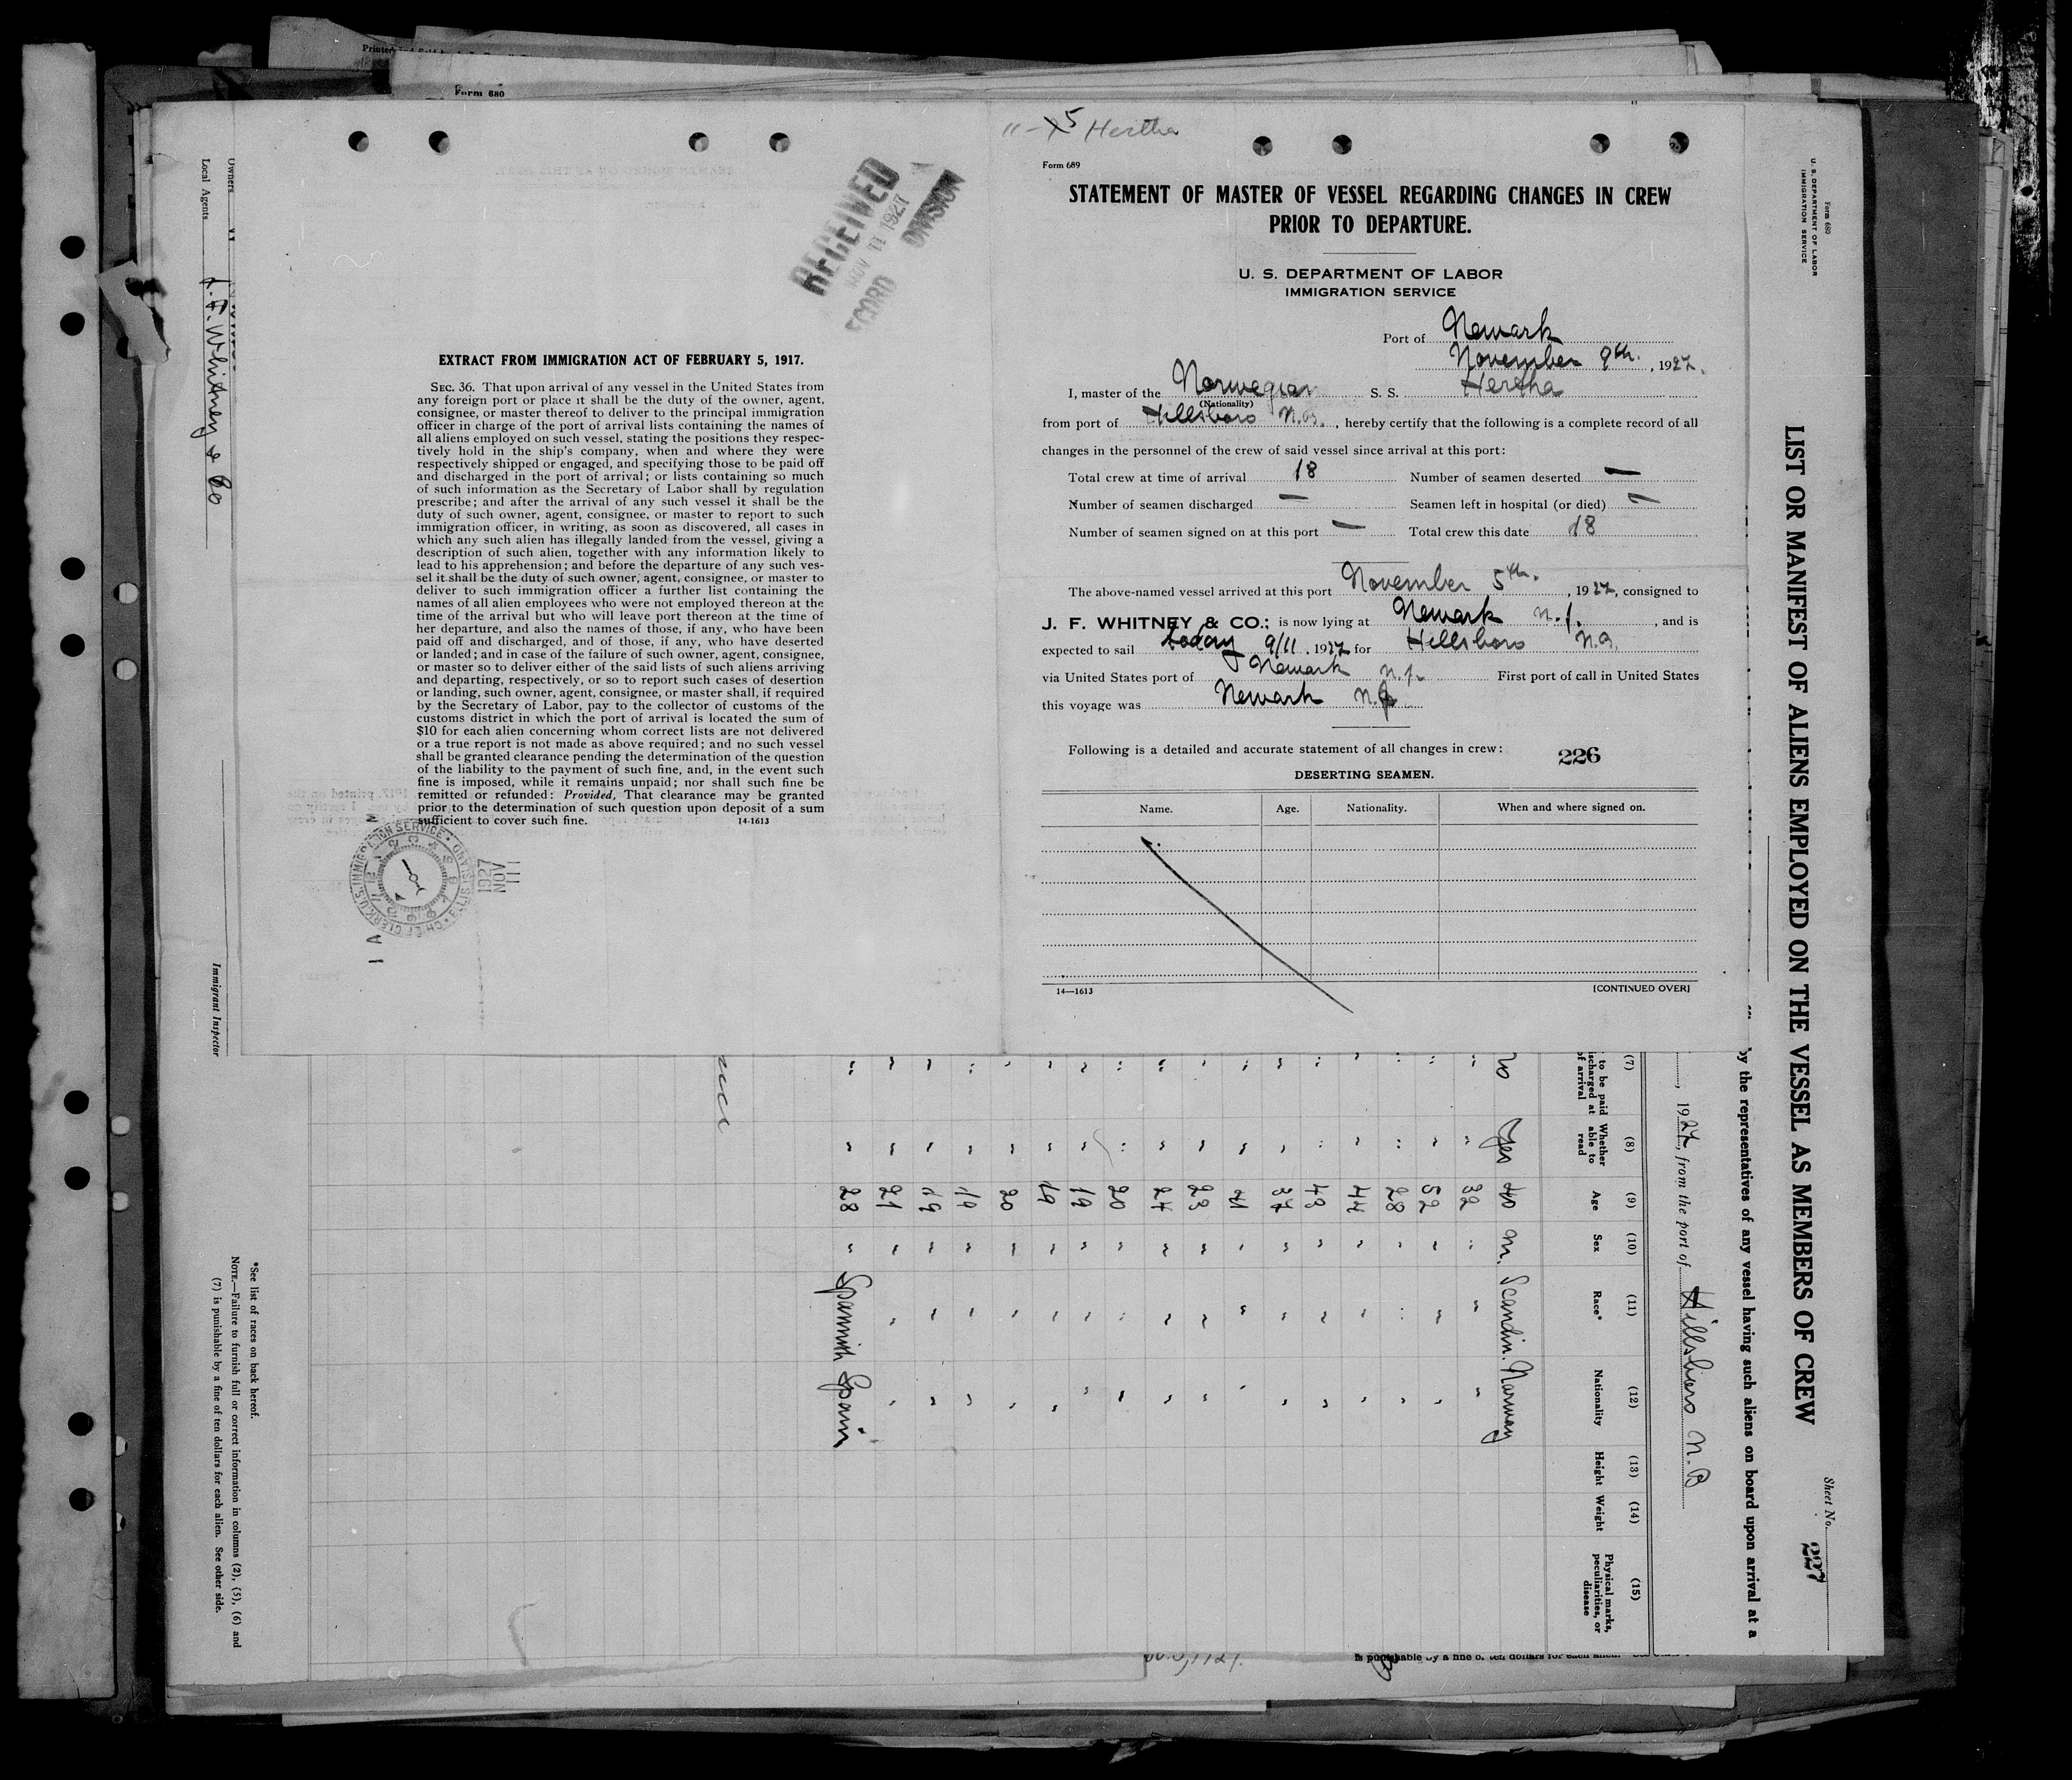 Form 680
Owners
Local Agents J. F. Whitney & Co
Immigrant Inspector
RECEIVED
NOV 11 1927
RECORD DIVISION
EXTRACT FROM IMMIGRATION ACT OF FEBRUARY 5, 1917.
SEC. 36. That upon arrival of any vessel in the United States from
any foreign port or place it shall be the duty of the owner, agent,
consignee, or master thereof to deliver to the principal immigration
officer in charge of the port of arrival lists containing the names of
all aliens employed on such vessel, stating the positions they respec-
tively hold in the ship's company, when and where they were
respectively shipped or engaged, and specifying those to be paid off
and discharged in the port of arrival; or lists containing so much
of such information as the Secretary of Labor shall by regulation
prescribe; and after the arrival of any such vessel it shall be the
duty of such owner, agent, consignee, or master to report to such
immigration officer, in writing, as soon as discovered, all cases in
which any such alien has illegally landed from the vessel, giving a
description of such alien, together with any information likely to
lead to his apprehension; and before the departure of any such ves-
sel it shall be the duty of such owner, agent, consignee, or master to
deliver to such immigration officer a further list containing the
names of all alien employees who were not employed thereon at the
time of the arrival but who will leave port thereon at the time of
her departure, and also the names of those, if any, who have been
paid off and discharged, and of those, if any, who have deserted
or landed; and in case of the failure of such owner, agent, consignee,
or master so to deliver either of the said lists of such aliens arriving
and departing, respectively, or so to report such cases of desertion
or landing, such owner, agent, consignee, or master shall, if required
by the Secretary of Labor, pay to the collector of customs of the
customs district in which the port of arrival is located the sum of
$10 for each alien concerning whom correct lists are not delivered
or a true report is not made as above required; and no such vessel
shall be granted clearance pending the determination of the question
of the liability to the payment of such fine, and, in the event such
fine is imposed, while it remains unpaid; nor shall such fine be
remitted or refunded: Provided, That clearance may be granted
prior to the determination of such question upon deposit of a sum
sufficient to cover such fine. 14-1613
CHIEF CLERK U.S. IMMIGRATION SERVICE ELLIS ISLAND
11 NOV 1927
11-5 Hertha
Form 689
STATEMENT OF MASTER OF VESSEL REGARDING CHANGES IN CREW
PRIOR TO DEPARTURE.
U. S. DEPARTMENT OF LABOR
IMMIGRATION SERVICE
Port of Newark
November 9th., 1927.
I, master of the Norwegian S. S. Hertha
(Nationality)
from port of Hillsboro N.B., hereby certify that the following is a complete record of all
changes in the personnel of the crew of said vessel since arrival at this port:
Total crew at time of arrival 18 Number of seamen deserted —
Number of seamen discharged — Seamen left in hospital (or died) —
Number of seamen signed on at this port — Total crew this date 18
The above-named vessel arrived at this port November 5th., 1927, consigned to
J. F. WHITNEY & CO.; is now lying at Newark N.J., and is
expected to sail today 9/11, 1927 for Hillsboro N.B.
via United States port of Newark N.J. First port of call in United States
this voyage was Newark N.J.
Following is a detailed and accurate statement of all changes in crew: 226
DESERTING SEAMEN.
Name. Age. Nationality. When and where signed on.
14—1613 [CONTINUED OVER]
Form 680
U. S. DEPARTMENT OF LABOR
IMMIGRATION SERVICE
LIST OR MANIFEST OF ALIENS EMPLOYED ON THE VESSEL AS MEMBERS OF CREW
Sheet No. 227
by the representatives of any vessel having such aliens on board upon arrival at a
, 1927, from the port of Hillsboro N.B
(7) (8) (9) (10) (11) (12) (13) (14) (15)
to be paid discharged at of arrival Whether able to read Age Sex Race* Nationality Height Weight Physical marks, peculiarities, or disease
no Yes 40 m. Scandin. Norway
" " 32 " " "
" " 52 " " "
" " 28 " " "
" " 44 " " "
" " 43 " " "
" " 37 " " "
" " 41 " " "
" " 23 " " "
" " 24 " " "
" " 20 " " "
" " 19 " " "
" " 19 " " "
" " 20 " " "
" " 19 " " "
" " 19 " " "
" " 21 " " "
" " 28 " Spannish Spain
*See list of races on back hereof.
NOTE.—Failure to furnish full or correct information in columns (2), (5), (6) and
(7) is punishable by a fine of ten dollars for each alien. See other side.
is punishable by a fine of ten dollars for each alien.